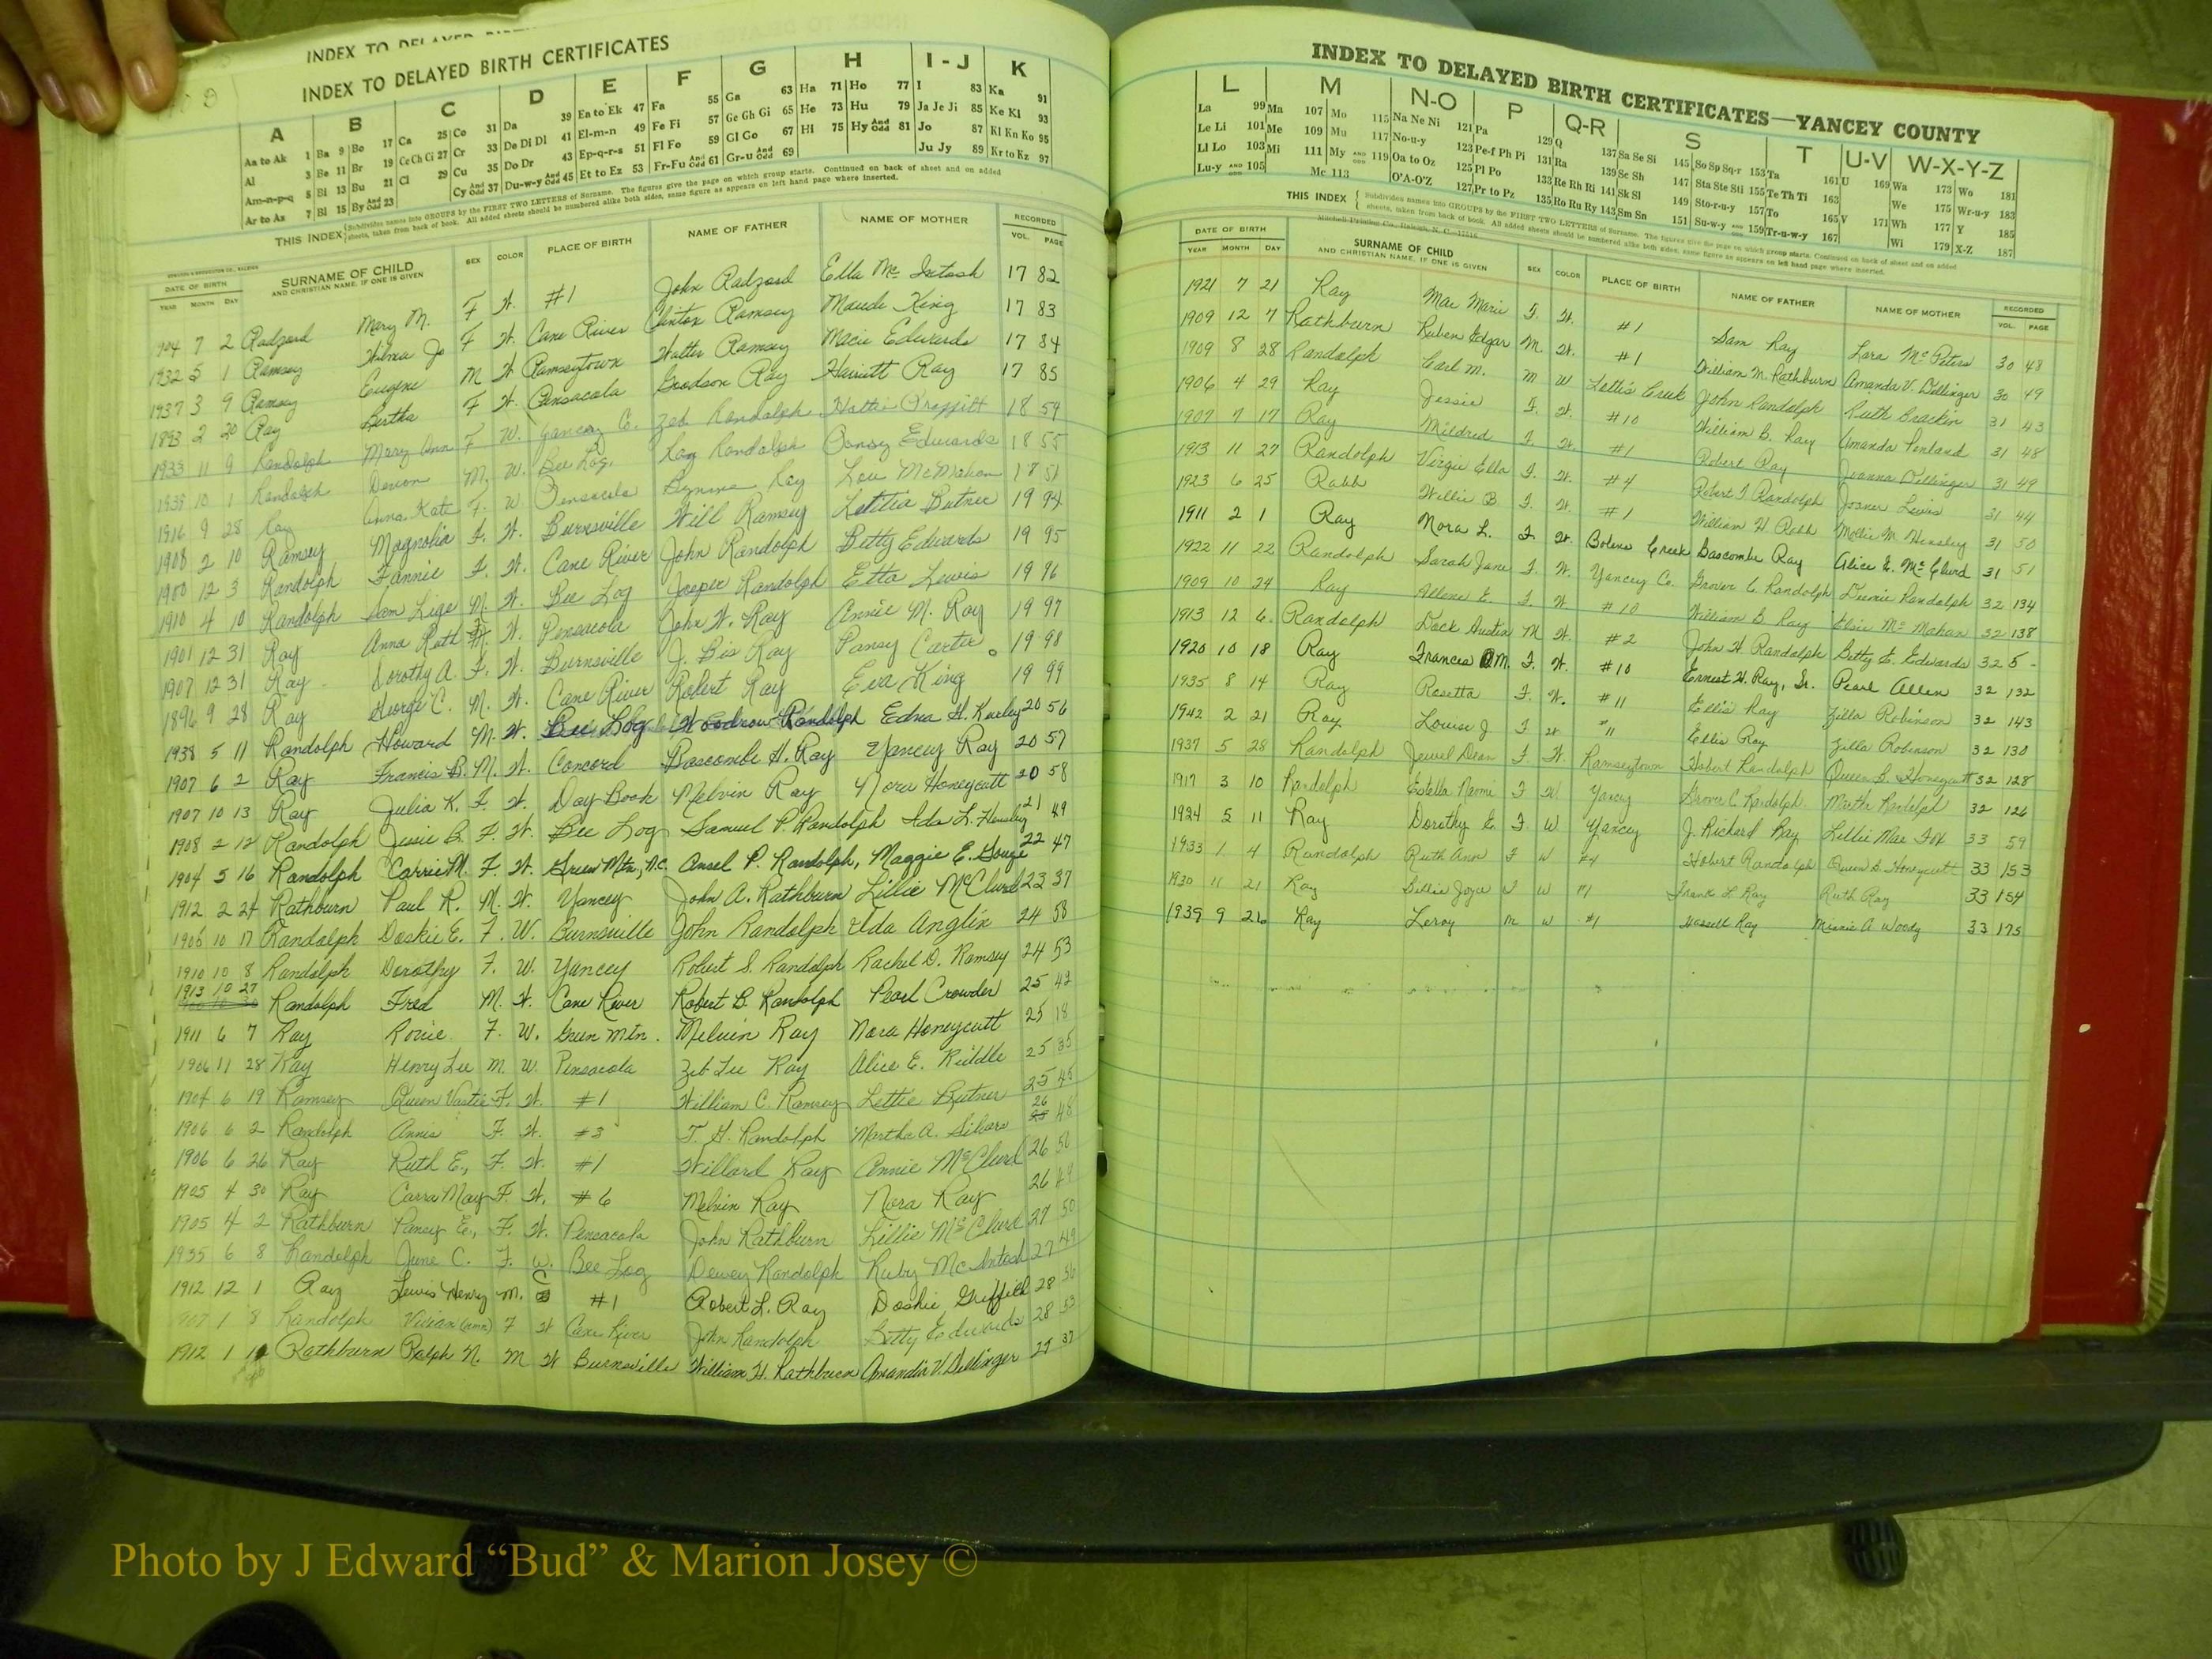 INDEX TO DELAYED BIRTH CERTIFICATES
A B C D E F G H I-J K
Aa to Ak 1 Ba 9 Bo 17 Ca 25 Co 31 Da 39 Ea to Ek 47 Fa 55 Ga 63 Ha 71 Ho 77 I 83 Ka 91
Al 3 Be 11 Br 19 Ce Ch Ci 27 Cr 33 De Di Dl 41 El-m-n 49 Fe Fi 57 Ge Gh Gi 65 He 73 Hu 79 Ja Je Ji 85 Ke Kl 93
Am-n-p-q 5 Bi 13 Bu 21 Cl 29 Cu 35 Do Dr 43 Ep-q-r-s 51 Fl Fo 59 Gl Go 67 Hi 75 Hy And Odd 81 Jo 87 Kl Kn Ko 95
Ar to Az 7 Bl 15 By And Odd 23 Cy And Odd 37 Du-w-y And Odd 45 Et to Ez 53 Fr-Fu And Odd 61 Gr-u And Odd 69 Ju Jy 89 Kr to Kz 97
THIS INDEX Subdivides names into GROUPS by the FIRST TWO LETTERS of Surname. The figures give the page on which group starts. Continued on back of sheet and on added
sheets, taken from back of book. All added sheets should be numbered alike both sides, same figure as appears on left hand page where inserted.
DATE OF BIRTH SURNAME OF CHILD SEX COLOR PLACE OF BIRTH NAME OF FATHER NAME OF MOTHER RECORDED
YEAR MONTH DAY AND CHRISTIAN NAME, IF ONE IS GIVEN VOL. PAGE
7 2 Radzord Mary M. F W. #1 John Radzord Ella McIntosh 17 82
1932 5 1 Ramsey Wilma Jo F W. Cane River Clinton Ramsey Maude King 17 83
1937 3 9 Ramsey Eugene M W Ramseytown Walter Ramsey Macie Edwards 17 84
1893 2 20 Ray Bertha F W. Pensacola Goodson Ray Harriett Ray 17 85
1933 11 9 Randolph Mary Ann F W. Yancey C. Zeb Randolph Hattie Proffitt 18 54
10 1 Randolph M. W. Bee Log. Ray Randolph Pansy Edwards 18 55
1916 9 28 Ray Anna Kate F. W. Pensacola Ray Lou McMahan
1908 2 10 Ramsey Magnolia F. W. Burnsville Will Ramsey Letitia Butner 19 94
1900 12 3 Randolph Fannie F. W. Cane River John Randolph Betty Edwards 19 95
1910 4 10 Randolph Sam Lige M. W. Bee Log Jasper Randolph Etta Lewis 19 96
1901 12 31 Ray Anna Ruth W. Pensacola John W. Ray Annie M. Ray 19 97
1907 12 31 Ray Dorothy A. F. W. Burnsville J. Bis Ray Pansy Carter 19 98
1896 9 28 Ray George C. M. W. Cane River Robert Ray Eva King 19 99
1938 5 11 Randolph Howard M. W. Bee Log Woodrow Randolph Edna H. 20 56
1907 6 2 Ray Francis B. M. W. Concord Bascombe H. Ray Yancey Ray 20 57
1907 10 13 Ray Julia K. F. W. Day Book Melvin Ray Nora Honeycutt 20 58
1908 2 12 Randolph Jesie B. F. W. Bee Log Samuel P. Randolph Ida L. Hensley 21 49
1904 5 16 Randolph Carrie M. F. W. Green Mtn, N.C. Ansel P. Randolph, Maggie E. Gouge 22 47
1912 2 24 Rathburn Paul R. M. W. Yancey John A. Rathburn Lillie McClurd 23 37
1906 10 17 Randolph Doskie E. F. W. Burnsville John Randolph Ida Anglin 24 58
1910 10 8 Randolph Dorothy F. W. Yancey Robert S. Randolph Rachel D. Ramsey 24 53
1913 10 27 Randolph Fred M. W. Cane River Robert B. Randolph Pearl Crowder 25 42
1911 6 7 Ray Roxie F. W. Green Mtn. Melvin Ray Nora Honeycutt 25 18
1906 11 28 Ray Henry Lee M. W. Pensacola Zeb Lee Ray Alice E. Riddle 25 35
1904 6 19 Ramsey Queen Vastie F. W. #1 William C. Ramsey Lettie Butner 25 45
1906 6 2 Randolph Annis F. W. #3 T. G. Randolph Martha A. Silvers 26 48
1906 6 26 Ray Ruth E., F. W. #1 Willard Ray Annie McClurd 26 50
1905 4 30 Ray Carra May F. W. #6 Melvin Ray Nora Ray 26 49
1905 4 2 Rathburn Pansy E., F. W. Pensacola John Rathburn Lillie McClurd 27 50
1935 6 8 Randolph June C. F. W. Bee Log Dewey Randolph Ruby McIntosh 27 49
1912 12 1 Ray Lewis Henry M. C #1 Robert L. Ray Doshie Griffith 28 56
1907 1 8 Randolph Vivian (nmn) F W Cane River John Randolph Betty Edwards 28 53
1912 1 Rathburn Ralph N. M W Burnsville William H. Rathburn Amanda V. Dellinger 29 37
INDEX TO DELAYED BIRTH CERTIFICATES—YANCEY COUNTY
L M N-O P Q-R S T U-V W-X-Y-Z
La 99 Ma 107 Mo 115 Na Ne Ni 121 Pa 129 Q 137 Sa Se Si 145 So Sp Sq-r 153 Ta 161 U 169 Wa 173 Wo 181
Le Li 101 Me 109 Mu 117 No-u-y 123 Pe-f Ph Pi 131 Ra 139 Sc Sh 147 Sta Ste Sti 155 Te Th Ti 163 We 175 Wr-u-y 183
Ll Lo 103 Mi 111 My AND ODD 119 Oa to Oz 125 Pl Po 133 Re Rh Ri 141 Sk Sl 149 Sto-r-u-y 157 To 165 V 171 Wh 177 Y 185
Lu-y AND 105 Mc 113 O'A-O'Z 127 Pr to Pz 135 Ro Ru Ry 143 Sm Sn 151 Su-w-y AND 159 Tr-u-w-y 167 Wi 179 X-Z 187
THIS INDEX Subdivides names into GROUPS by the FIRST TWO LETTERS of Surname. The figures give the page on which group starts. Continued on back of sheet and on added
sheets, taken from back of book. All added sheets should be numbered alike both sides, same figure as appears on left hand page where inserted.
DATE OF BIRTH SURNAME OF CHILD SEX COLOR PLACE OF BIRTH NAME OF FATHER NAME OF MOTHER RECORDED
YEAR MONTH DAY AND CHRISTIAN NAME, IF ONE IS GIVEN VOL. PAGE
1921 7 21 Ray Mae Marie F. W. #1 Sam Ray Lara McPeters 30 48
1909 12 7 Rathburn Ruben Edgar M. W. #1 William M. Rathburn Amanda V. Dellinger 30 49
1909 8 28 Randolph Earl M. M W Letts Creek John Randolph Ruth Brackin 31 43
1906 4 29 Ray Jessie F. W. #10 William B. Ray Amanda Penland 31 48
1907 7 17 Ray Mildred F W. #1 Robert Ray Joanna Dellinger 31 49
1913 11 27 Randolph Virgie Ella F. W. #4 Robert Randolph Lewis 31 44
1923 6 25 Robb Willie B. F. W. #1 William H. Robb Mollie M. Hensley 31 50
1911 2 1 Ray Nora L. F W. Bolens Creek Bascombe Ray Alice E. McClurd 31 51
1922 11 22 Randolph Sarah Jane F. W. Yancey Co. Grover C. Randolph Randolph 32 134
1909 10 24 Ray Allene E. F. W #10 William B. Ray Elsie McMahan 32 138
1913 12 6 Randolph Dock Austin M W. #2 John H. Randolph Betty E. Edwards 32 5
1920 10 18 Ray Frances M. F. W. #10 Ernest H. Ray, Sr. Pearl Allen 32 132
1935 8 14 Ray Rosetta F. W. #11 Ellis Ray Zilla Robinson 32 143
1942 2 21 Ray Louise J F W " Ellis Ray Zilla Robinson 32 130
1937 5 28 Randolph Jewel Dean F. W. Ramseytown Hobert Randolph Queen B. Honeycutt 32 128
1917 3 10 Randolph Estella Naomi F W Yancey Grover C. Randolph Martha Randolph 32 126
1924 5 11 Ray Dorothy E. F W Yancey J. Richard Ray Lillie Mae Fox 33 59
1933 1 4 Randolph Ruth Ann F W #4 Hobert Randolph Queen B. Honeycutt 33 153
1930 11 21 Ray Billie Joyce F W #1 Frank L Ray Ruth Ray 33 154
1939 9 26 Ray Leroy M W #1 Ray Minnie A Woody 33 175
Photo by J Edward “Bud” & Marion Josey ©